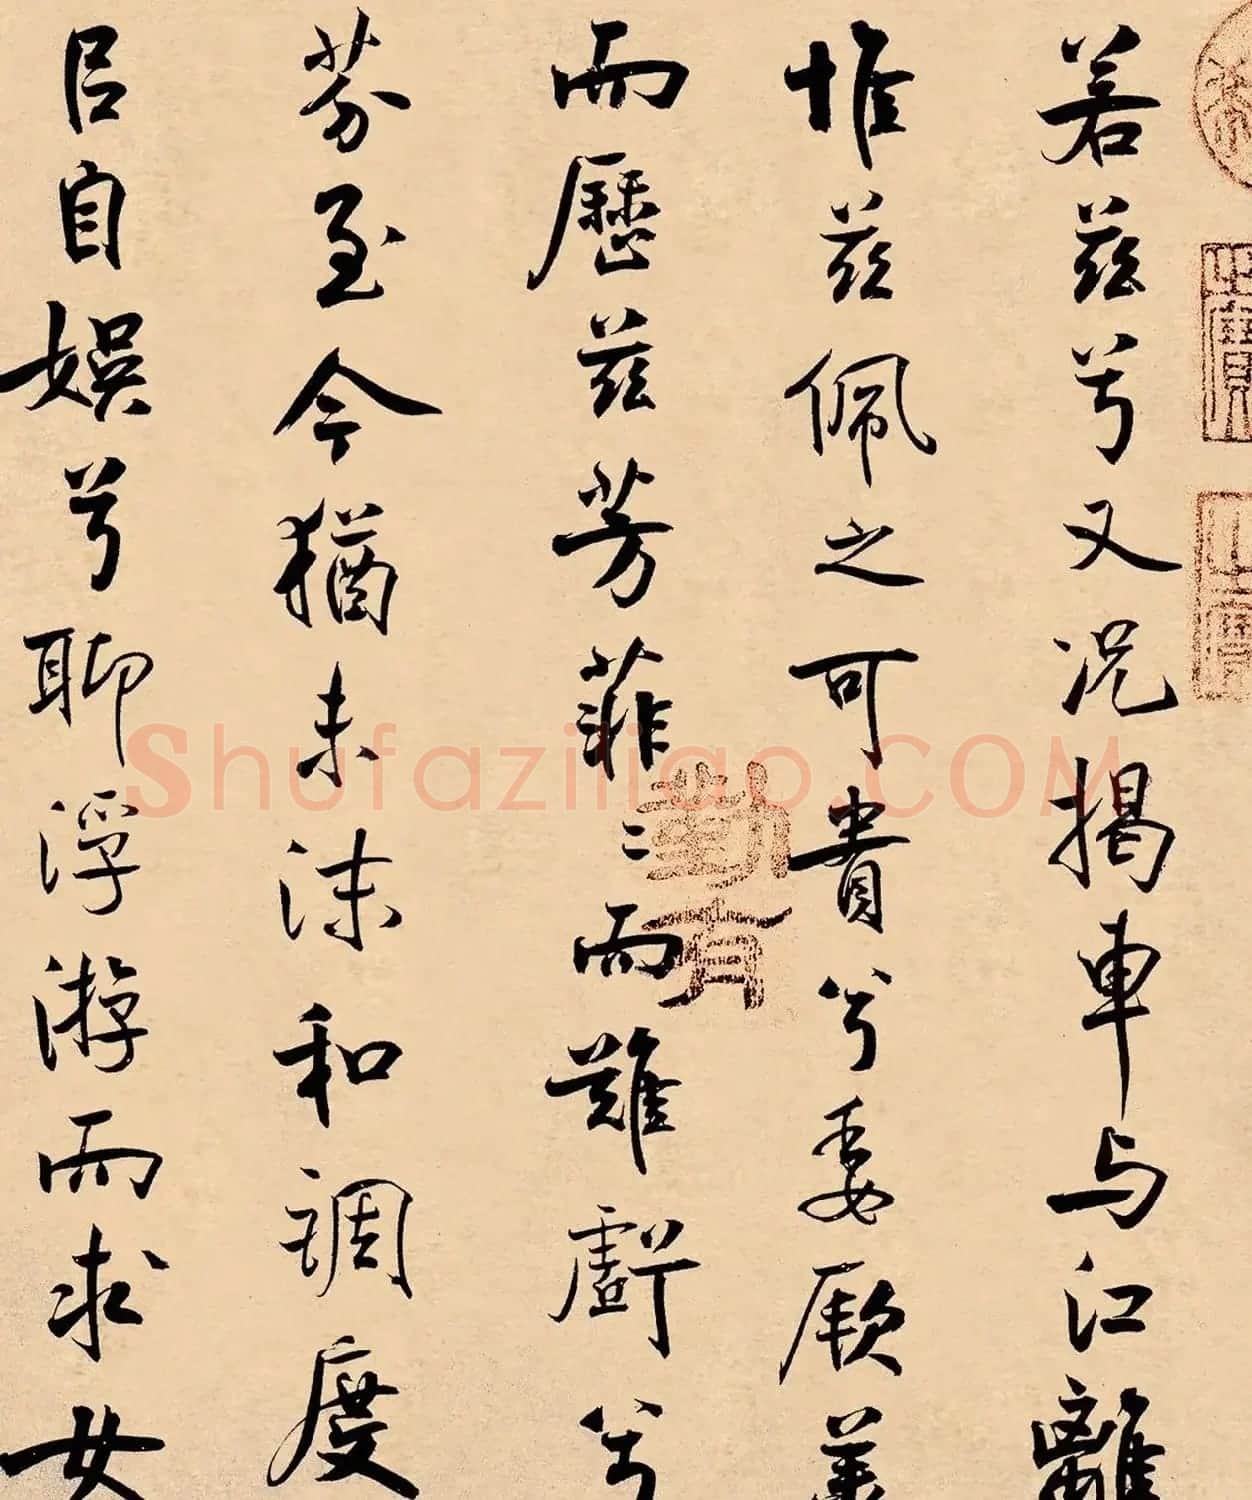 若茲兮又况揭車与江離
惟茲佩之可貴兮委厥美
而歷茲芳菲〻而難虧兮
芬至今猶未沬和調度
㠯自娛兮聊浮游而求女
Shufaziliao.COM
勤有